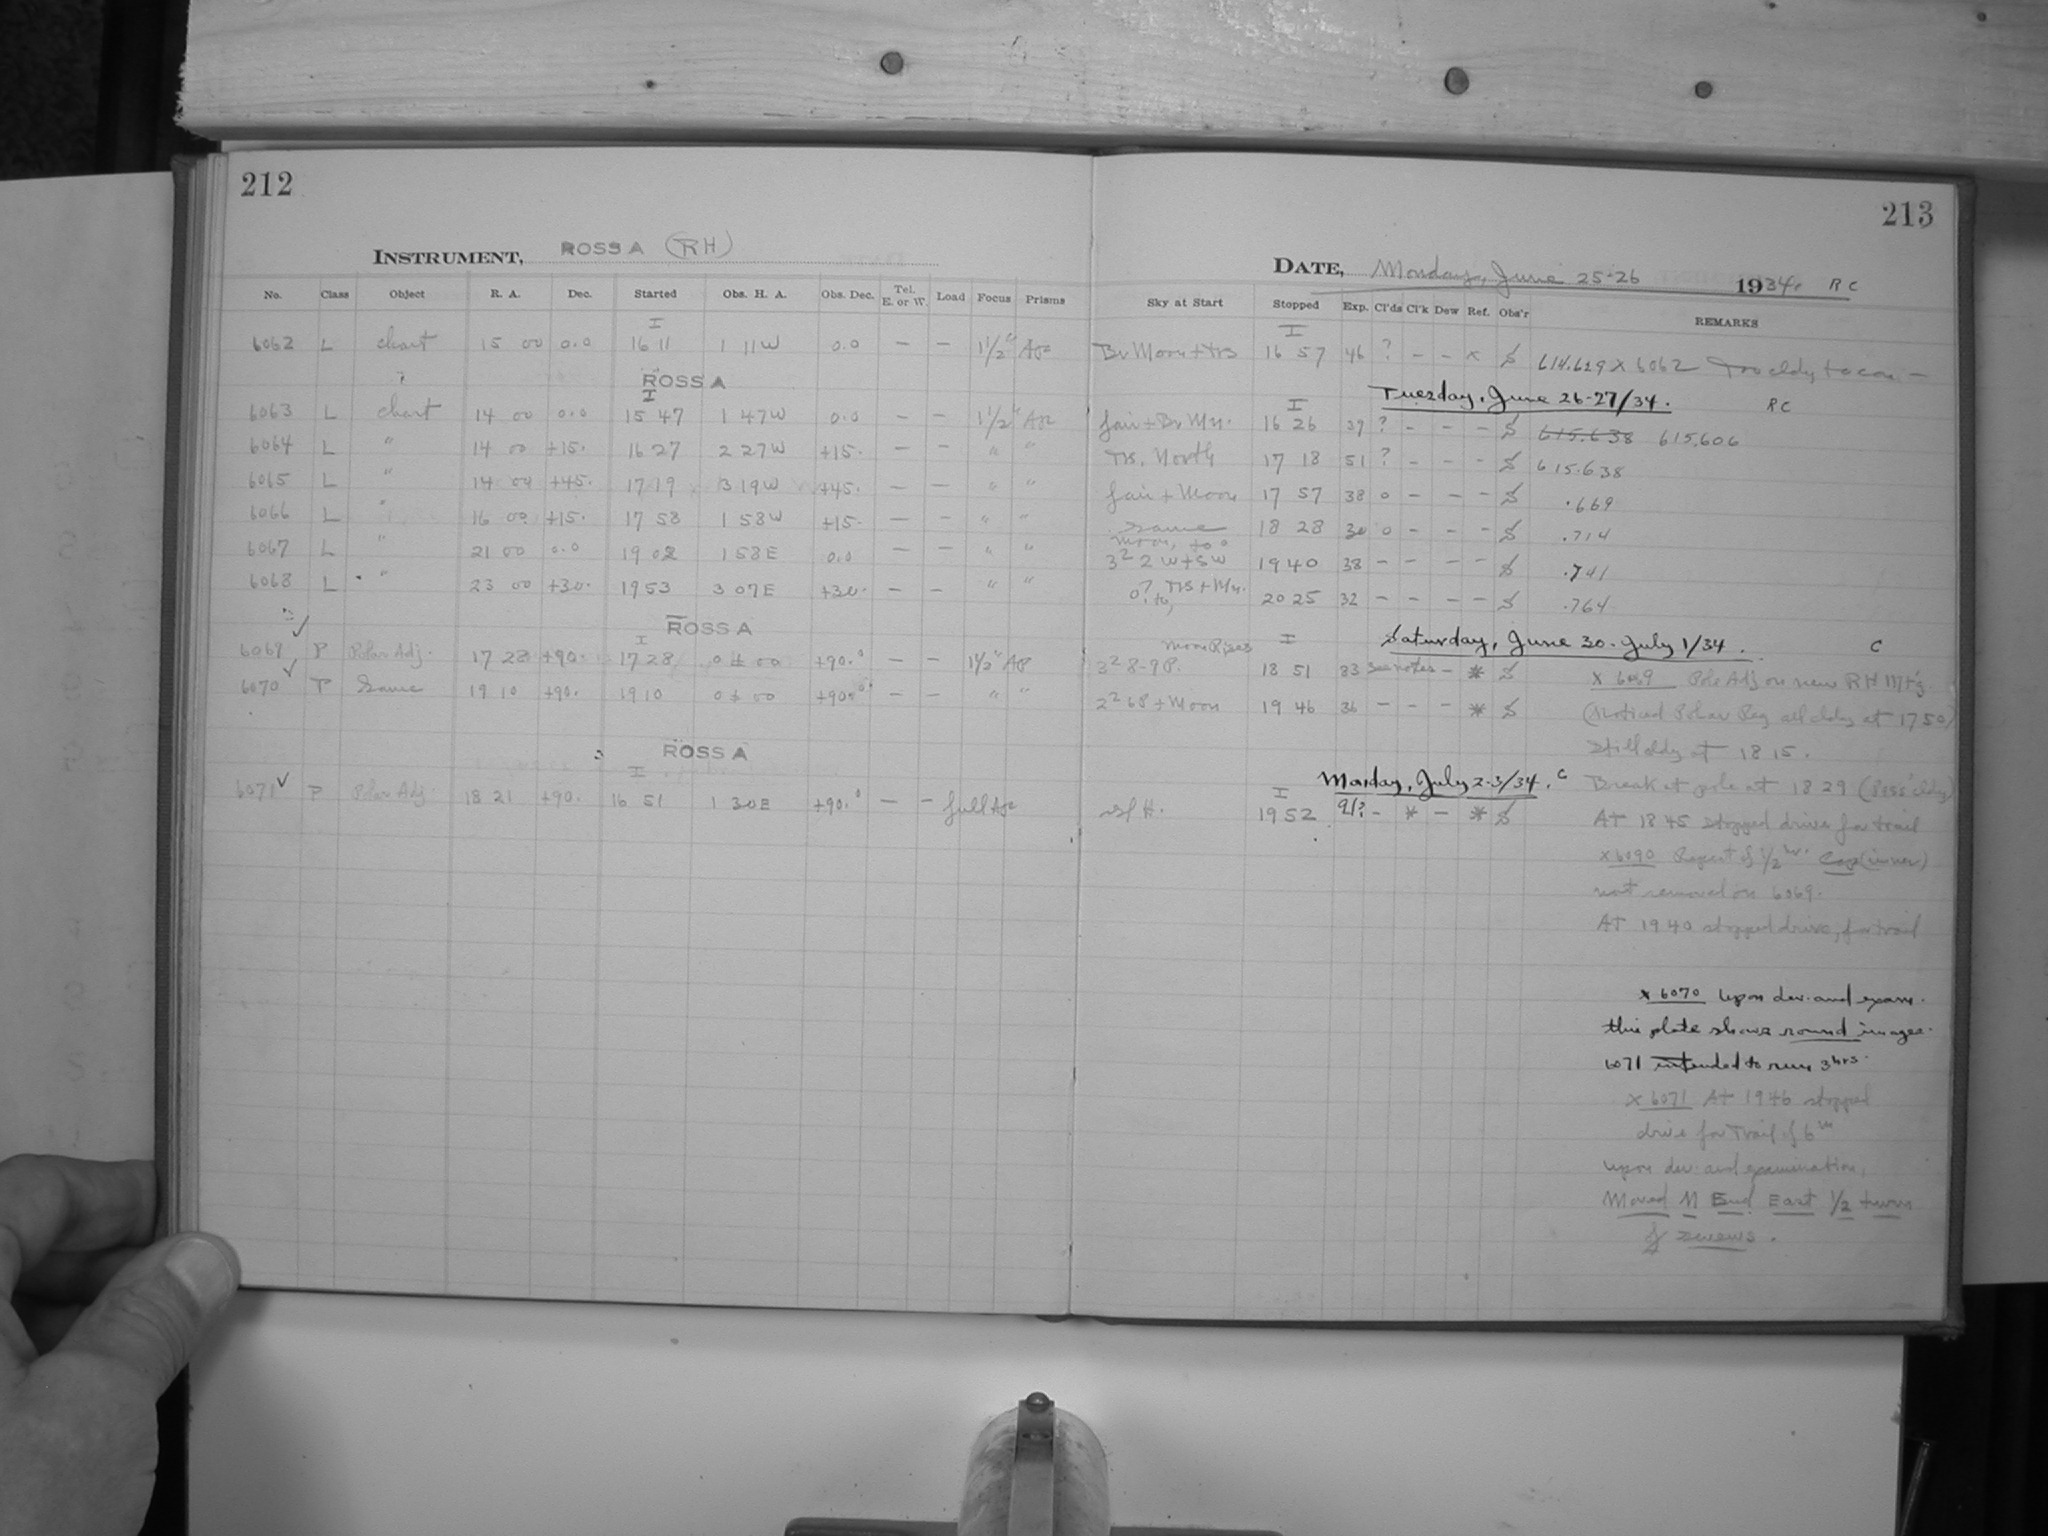 212
INSTRUMENT, ROSS A (RH)
No. Class Object R. A. Dec. Started Obs. H. A. Obs. Dec. Tel. E. or W. Load Focus Prisms
I
6062 L chart 15 00 0.0 16 11 1 11W 0.0 — — 1 1/2"
ROSS A
I
6063 L chart 14 00 0.0 15 47 1 47W 0.0 — — 1 1/2"
6064 L " 14 00 +15. 16 27 2 27W +15. — — " "
6065 L " 14 00 +45. 17 19 3 19W +45. — — " "
6066 L " 16 00 +15. 17 58 1 58W +15. — — " "
6067 L " 21 00 0.0 19 02 1 58E 0.0 — — " "
6068 L " 23 00 +30. 19 53 3 07E +30. — — " "
ROSS A
I
6069 P Polar Adj. 17 28 +90. 17 28 0 ± 00 +90.° — — 1 1/2" Ap
6070 P Same 19 10 +90. 19 10 0 ± 00 +90.° — — " "
ROSS A
I
6071 P Polar Adj. 18 21 +90. 16 51 1 30E +90.° — — full
213
DATE, Monday, June 25-26 1934. RC
Sky at Start Stopped Exp. Cl'ds Cl'k Dew Ref. Obs'r REMARKS
I
Br Moon + Trs 16 57 46 ? — — x S 614.629 x 6062 Too cldy to con. —
Tuesday, June 26-27/34. RC
I
fair + Br Mn. 16 26 39 ? - - - S 615.638 615.606
Trs. North 17 18 51 ? - - - S 615.638
fair + Moon 17 57 38 0 - - - S .669
same 18 28 30 0 - - - S .714
Moon, to
3² 2 W+SW 19 40 38 - - - - S .741
0? to, Trs + Mn. 20 25 32 - - - - S .764
Saturday, June 30-July 1/34. C
Moon Rises I
3² 8-9P. 18 51 83 see notes - * S x 6069 Pole Adj on new RH Mt'g.
2² 6P + Moon 19 46 36 - - - * S (Noticed Polar Reg all cldy at 1750)
Still cldy at 18 15.
Monday, July 2-3/34. C
Break at pole at 18 29 (Poss' cldy)
I
H. 19 52 91? - * - * S At 18 45 stopped drive for trail
x 6090 Repeat of 1/2 hr. Cap (inner)
not removed on 6069.
At 19 40 stopped drive, for trail
x 6070 Upon dev. and exam.
this plate shows round images.
6071 intended to run 3 hrs.
x 6071 At 1946 stopped
drive for Trail of 6m
Upon dev. and examination,
Moved N End East 1/2 turn
of screws.